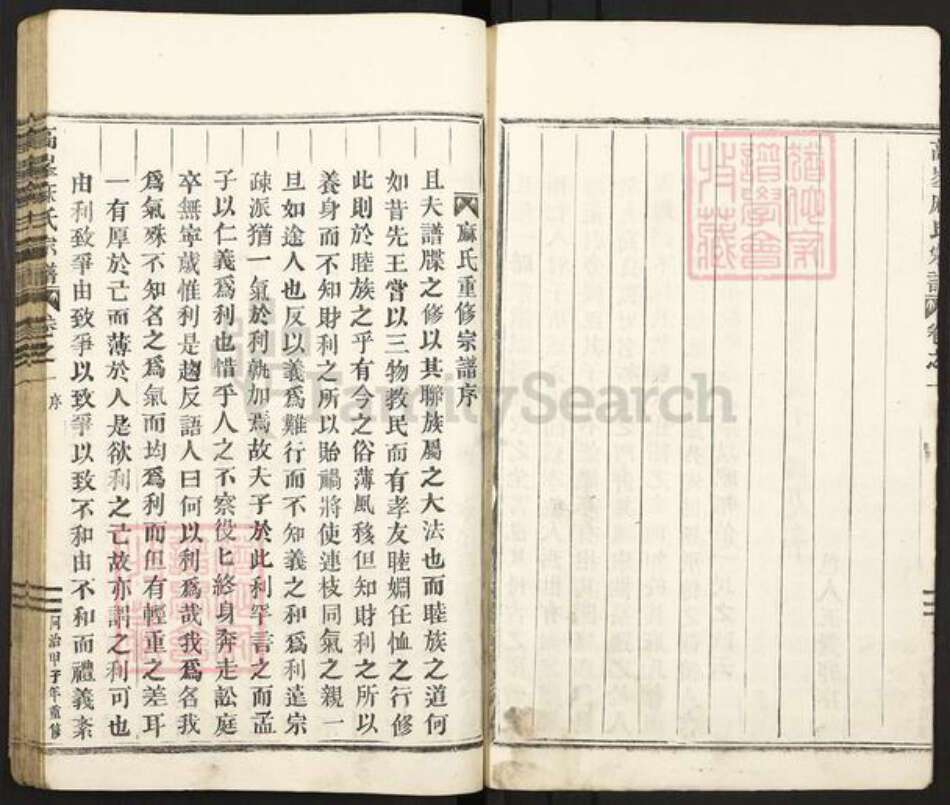 麻氏重修宗譜序
且夫譜牒之修以其聯族屬之大法也而睦族之道何
如昔先王嘗以三物教民而有孝友睦婣任恤之行修
此則於睦族之乎有今之俗薄風移但知財利之所以
養身而不知財利之所以貽禍將使連枝同氣之親一
旦如途人也反以義爲難行而不知義之和爲利遠宗
疎派猶一氣於利孰加焉故夫子於此利罕言之而孟
子以仁義爲利也惜乎人之不察役匕終身奔走訟庭
卒無寧歲惟利是趨反語人曰何以利爲哉我爲名我
爲氣殊不知名之爲氣而均爲利而但有輕重之差耳
一有厚於己而薄於人是欲利之亡故亦謂之利可也
由利致爭由致爭以致爭以致不和由不和而禮義紊
氏宗譜
卷之一
序
同治甲子年重修
譜學會
收藏
FamilySearch